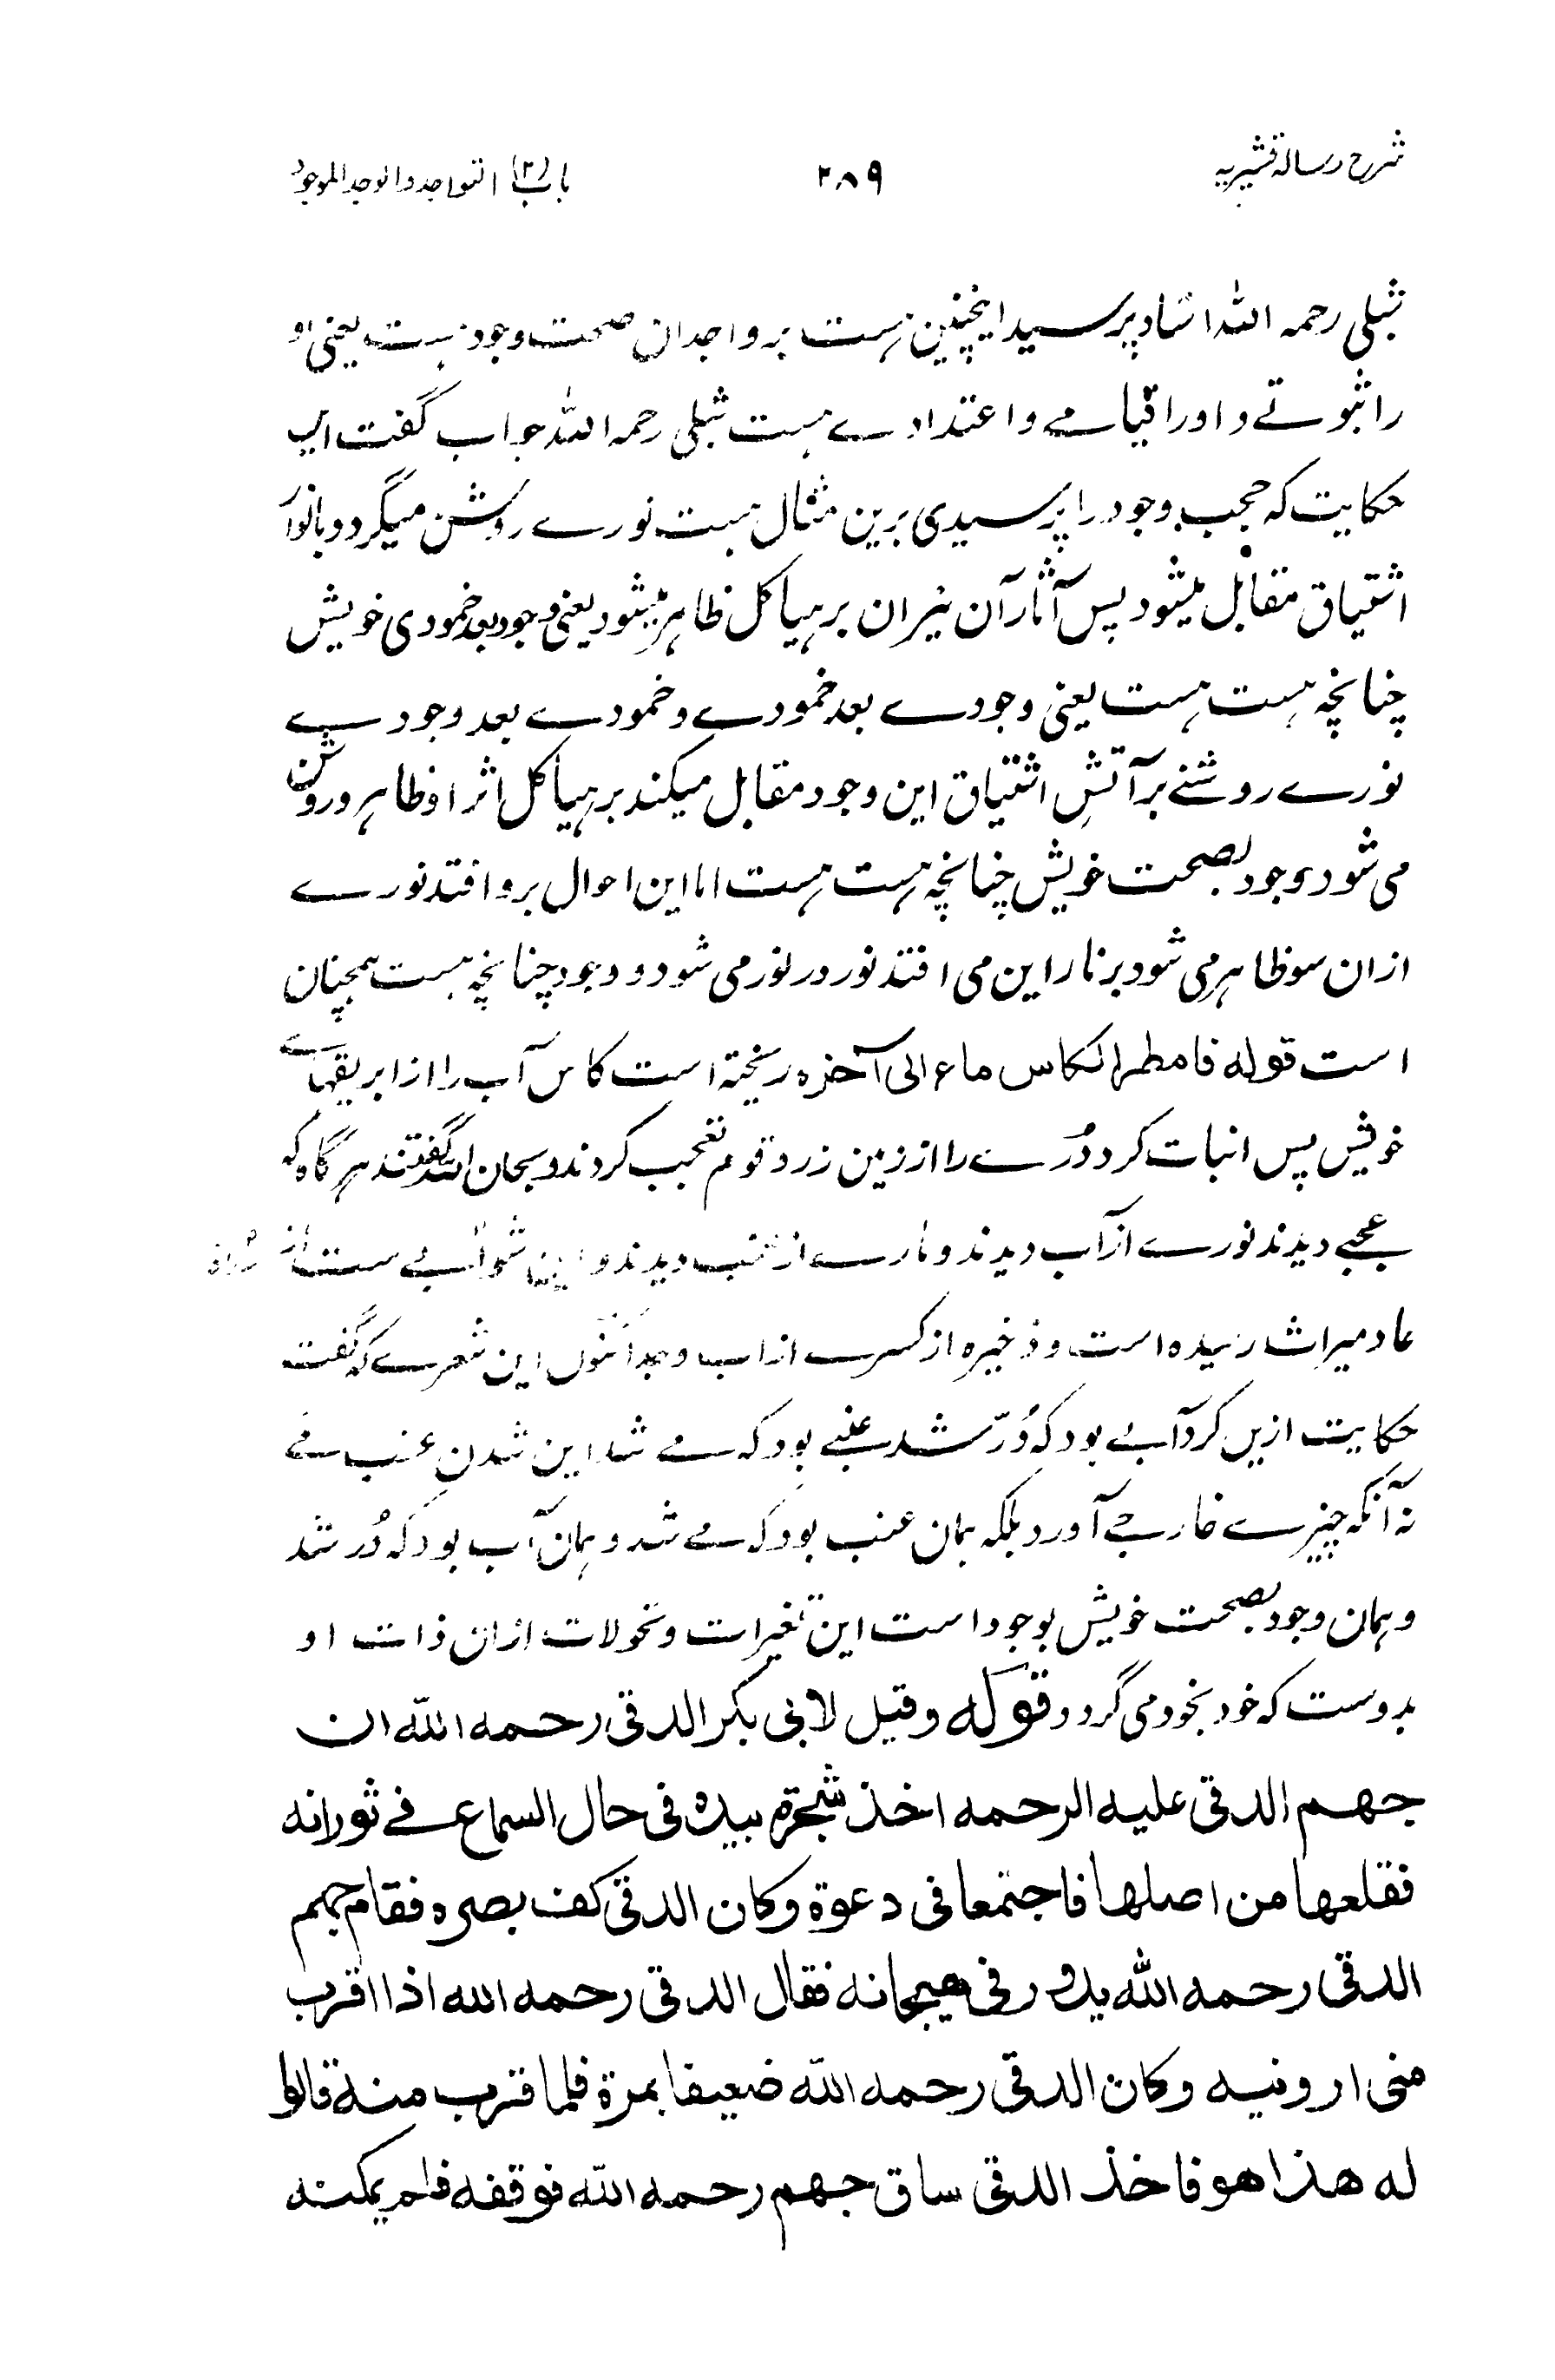 شرح رسالہ قشیریہ
۲۸۹
باب (۳) التواجد والوجد الموجود
شبلی رحمہ اللہ استاد پرسید اینچنین ہست بر واجدان صحت وجود ہست یعنی او
را ثبوتے و اورا قیامے و اعتدادے ہست شبلی رحمہ اللہ جواب گفت این
حکایت کہ حجب وجود را پرسیدی برین مثال ہست نورے روشن میگردد بانوار
اشتیاق مقابل میشود پس آثار آن نیران بر ہیاکل ظاہر میشود یعنی وجود بعد خمودی خویش
چنانچہ ہست ہست یعنی وجودے بعد خمودے و خمودے بعد وجودے
نورے روشنے بر آتش اشتیاق این وجود مقابل میکند بر ہیاکل اثر او ظاہر و روشن
می شود وجود بصحت خویش چنانچہ ہست ہست اما این احوال برو افتد نورے
ازان سو ظاہر می شود بر نار این می افتد نور در نور می شود و وجود چنانچہ ہست ہمچنان
است قولہ فامطر الکاس ماء الی آخرہ ریختہ است کاس آب را از ابریقہاے
خویش پس انبات کرد دُرے را از زمین زر و قوم تعجب کردند و سبحان اللہ گفتند ہرگاہ کہ
عجبے دیدند نورے از آب دیدند و نارے از عنب دیدند و این
عاد میراث رسیدہ است و ذخیرہ از کسرے ازاب و جد این شعرے کہ گفت
حکایت ازیں کرد آبے بود کہ دُرّ شد عنبے بود کہ مے شد این شدن عنب مے
نہ آنکہ چیزے خارجے آورد بلکہ ہمان عنب بود کہ مے شد و ہمان آب بود کہ دُر شد
و ہمان وجود بصحت خویش بوجود است این تغیرات و تحولات ازان ذات او
بدوست کہ خود بخود می گردد قولہ وقیل لابی بکر الدقی رحمہ اللہ ان
جہم الدقی علیہ الرحمہ اخذ شجرۃ بیدہ فی حال السماع فے ثورانہ
فقلعہا من اصلہا فاجتمعا فی دعوۃ وکان الدقی کف بصرہ فقام جہم
الدقی رحمہ اللہ یدور فی ہیجانہ فقال الدقی رحمہ اللہ اذا اقرب
منی ارونیہ وکان الدقی رحمہ اللہ ضعیفا بمرۃ فلما قرب منہ قالوا
لہ ہذا ہو فاخذ الدقی ساق جہم رحمہ اللہ فوقفہ فلم یمکنہ